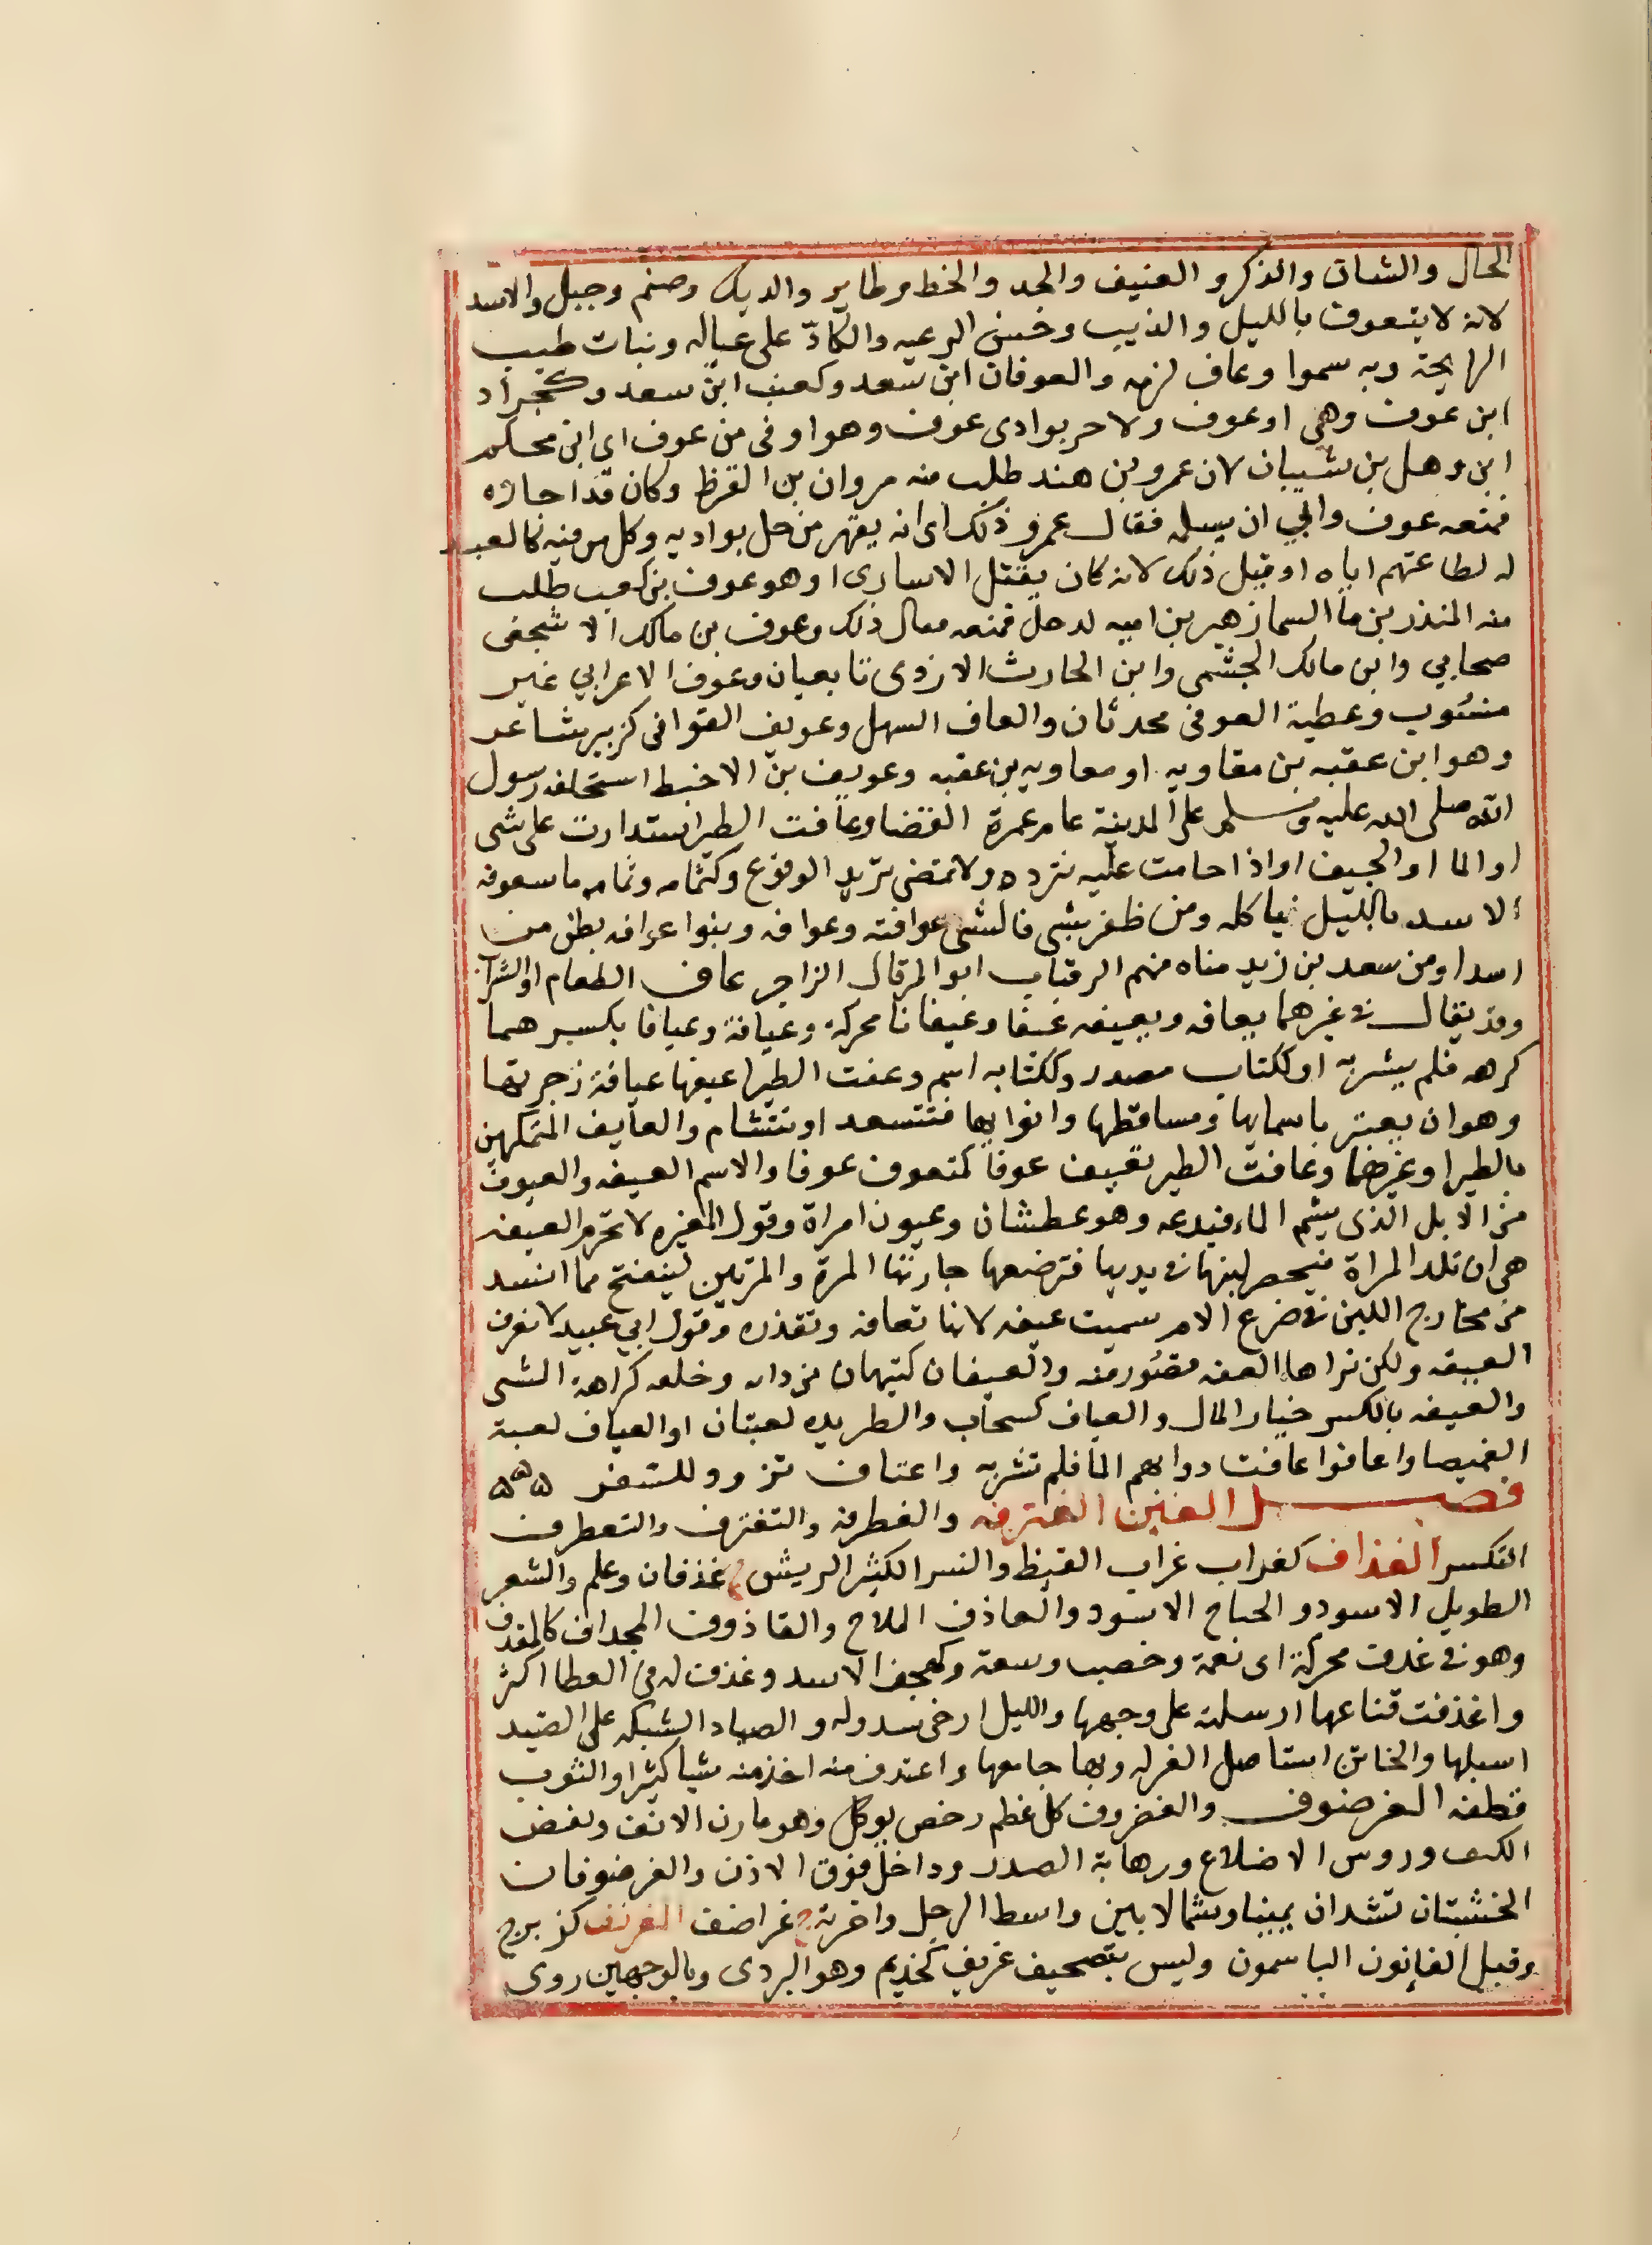 الحال والشان والذكر والضيف والجد والحظ وطاير والديك وصنم وجبل والاسد
لانه لا يتعوف بالليل والذيب وحسن الرعيه والكادّ على عياله ونبات طيب
الرايحة وبه سموا وعاف لزمه والعوفان ابن سعد وكعب ابن سعد وكجراد
ابن عوف وهي او عوف ولا حر بوادى عوف وهو اوفى من عوف اى ابن محكم
ابن دهل بن شيبان لان عمرو بن هند طلب منه مروان بن القرظ وكان قد اجاره
فمنعه عوف وابي ان يسلمه فقال عمرو ذلك اى انه يقهر من حل بواديه وكل من فيه كالعبد
له لطاعتهم اياه او قيل ذلك لانه كان يقتل الاسارى او هو عوف بن كعب طلب
منه المنذر بن ما السما زهير بن اميه لدحل فمنعه فقال ذلك وعوف بن مالك الاشجعى
صحابي وابن مالك الجشمى وابن الحارث الازدى تابعيان وعوف الاعرابي غير
منسوب وعطية العوفى محدثان والعاف السهل وعويف القوافى كزبير شاعر
وهو ابن عقبه بن معاويه او معاويه بن عقبه وعويف بن الاضبط استخلفه رسول
الله صلى الله عليه وسلم على المدينة عام عمرة القضا وعافت الطير استدارت على شى
او الما او الجيف او اذا حامت عليه تتردد ولا تمضى تريد الوقوع وكثمامه وثمام ما يتعوفه
الاسد بالليل فياكله ومن ظفر بشى فالشى عوافته وعوافه وبنوا عوافه بطن من
اسد او من سعد بن زيد مناه منهم الرقبان ابو المرقال الزاجر عاف الطعام او الشراب
وقد يقال فى غيرهما يعافه ويعيفه عيفا وعيفانا محركة وعيافة وعيافا بكسرهما
كرهه فلم يشربه او ككتاب مصدر وككتابه اسم وعفت الطير اعيفها عيافة زجرتها
وهو ان يعتبر باسمايها ومساقطها وانوايها فتتسعد او تتشام والعايف المتكهن
بالطير او غيرها وعافت الطير تعيف عوفا كتعوف عوفا والاسم العيفه والعيوف
من الابل الذى يشم الماء فيدعه وهو عطشان وعيوف امراة وقول المغيره لا تحرم العيفه
هى ان تلد المراة فيحصر لبنها فى يديها فترضعها جارتها المرة والمرتين لينفتح ما انسد
من مخارج اللبن فى ضرع الام سميت عيفه لانها تعافه وتقذره وقول ابي عبيد لا نعرف
العيفه ولكن نراها العفه مقصور منه والعيفان كتيهان من دابه وخلقه كراهة الشى
والعيفه بالكسر خيار المال والعياف كسحاب والطريده لعبتان او العياف لعبة
الغميصا واعافوا عافت دوابهم الما فلم تشربه واعتاف تزود للسفر ه ه ه
فصل الغين الغترفه والغطرفه والتغترف والتغطرف
التكبر الغداف كغراب غراب القيظ والنسر الكثير الريش ج غدفان وعلم والشعر
الطويل الاسود والجناح الاسود والغاذف الملاح والغاذوف المجداف كالمغدف
وهو فى غدف محركة اى نعمة وخصب وسعة وكهجف الاسد وغذف له فى العطا اكثر
واغذفت قناعها ارسلته على وجهها والليل ارخى سدوله والصياد الشبكه على الصيد
اسبلها والخاتن استاصل الغرله وبها جامعها واغتدف منه اخذ منه شيا كثيرا والثوب
قطعه الغرضوف والغضروف كل عظم رخص يوكل وهو مارن الانف ونغض
الكتف وروس الاضلاع ورهابة الصدر وداخل فوق الاذن والغرضوفان
الخشبتان تشدان يمينا وشمالا بين واسط الرحل واخرته ج غراضف الغرنف كزبرج
وقيل الغانون الياسمون وليس بتصحيف غريف كحذيم وهو البردى وبالوجهين روى